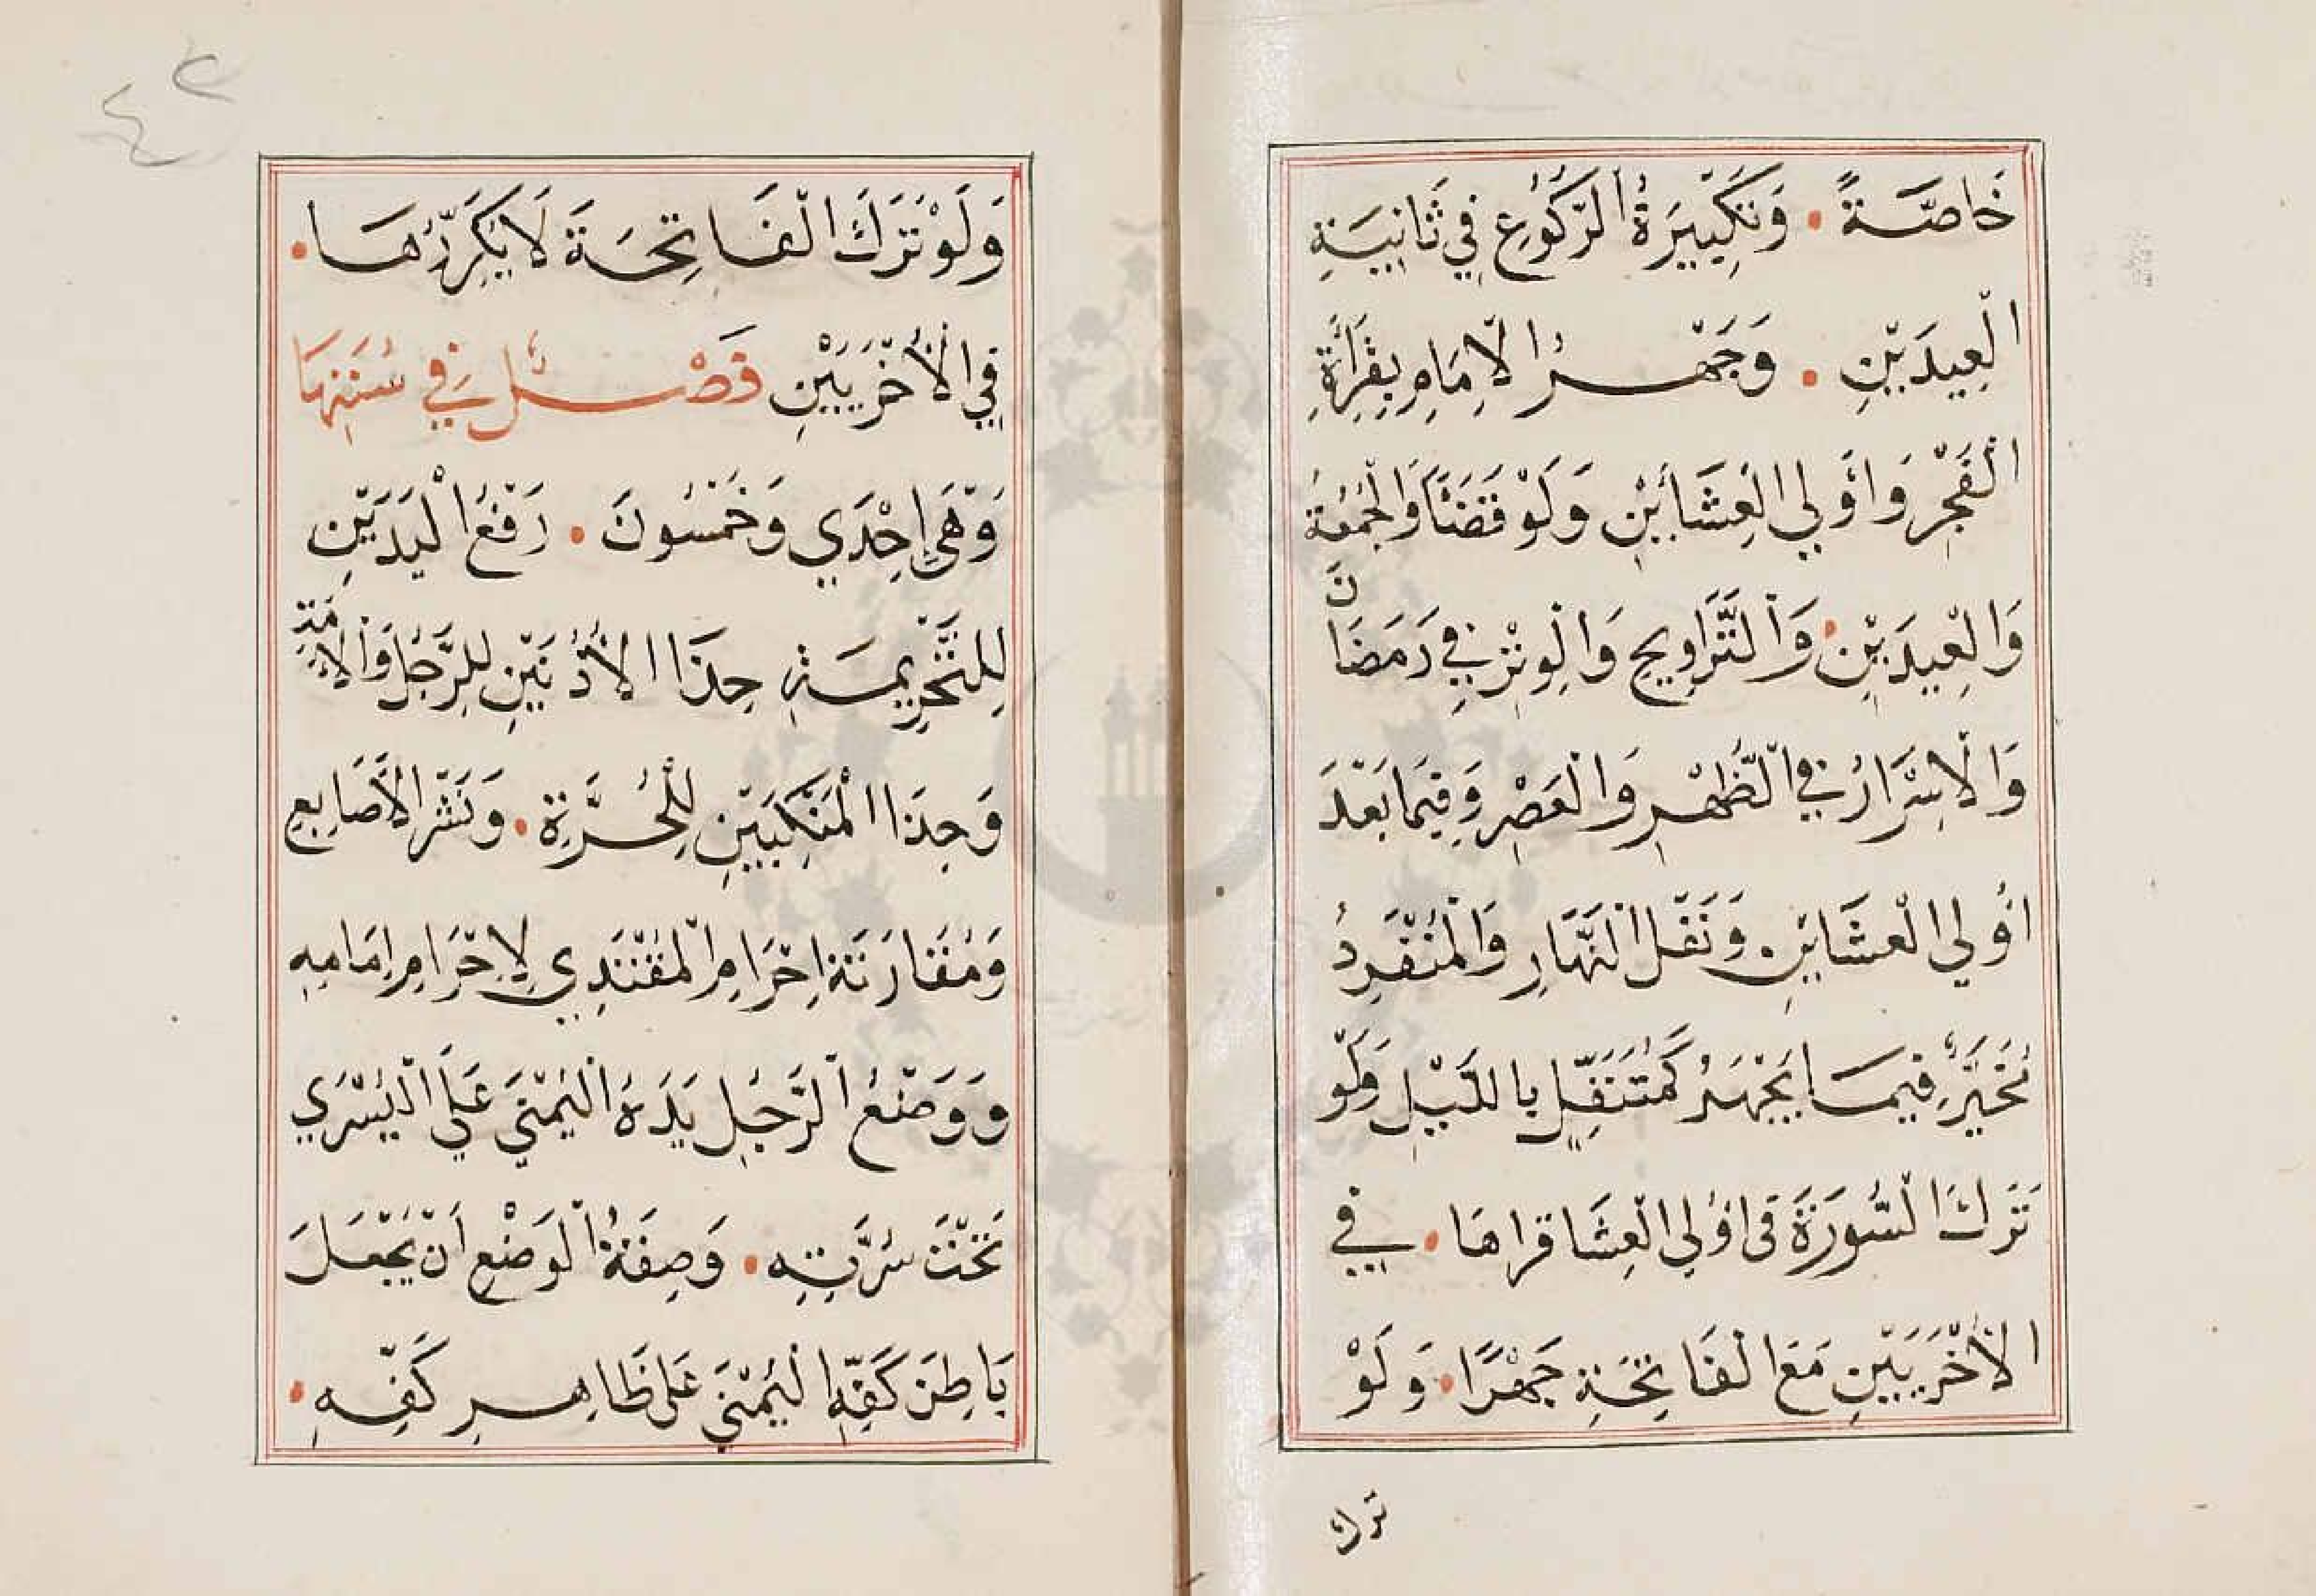 خَاصَّةً • وَتَكْبِيرَةُ الرُّكُوعِ فِي ثَانِيَةِ
الْعِيدَيْنِ • وَجَهْرُ الْاِمَامِ بِقِرَأَةِ
الْفَجْرِ وَاُولِي الْعِشَائَيْنِ وَلَوْ قَضَأً وَالْجُمُعَةِ
وَالْعِيدَيْنِ • وَالتَّرَاوِيحِ وَالْوِتْرِ فِي رَمَضَانَ
وَالْاِسْرَارُ فِي الظُّهْرِ وَالْعَصْرِ وَفِيمَا بَعْدَ
اُولِي الْعِشَائَيْنِ • وَنَفْلِ النَّهَارِ وَالْمُنْفَرِدُ
مُخَيَّرٌ فِيمَا يَجْهَرُ كَمُتَنَفِّلٍ بِاللَّيْلِ وَلَوْ
تَرَكَ السُّورَةَ فى اُولِي الْعِشَا قراهَا • فِي
الْاُخْرَيَيْنِ مَعَ الْفَاتِحَةِ جَهْرًا • وَلَوْ
ترك
٤٢
وَلَوْ تَرَكَ الْفَاتِحَةَ لَا يُكَرِّرُهَا •
فِي الْاُخْرَيَيْنِ فَصْلٌ فِي سُنَنِهَا
وَهِيَ اِحْدَي وَخَمْسُونَ • رَفْعُ الْيَدَيْنِ
لِلتَّحْرِيمَةِ حِذَا الْاُذُنَيْنِ لِلرَّجُلِ وَالْاَمَةِ
وَحِذَا الْمَنْكِبَيْنِ لِلْحُرَّةِ • وَنَشْرُ الْاَصَابِعِ
وَمُقَارَنَةُ اِحْرَامِ الْمُقْتَدِي لِاِحْرَامِ اِمَامِهِ
وَوَضْعُ الرَّجُلِ يَدَهُ الْيُمْنَي عَلَي الْيُسْرَي
تَحْتَ سُرَّتِهِ • وَصِفَةُ الْوَضْعِ اَنْ يَجْعَلَ
بَاطِنَ كَفِّهِ الْيُمْنَي عَلَى ظَاهِرِ كَفِّهِ •